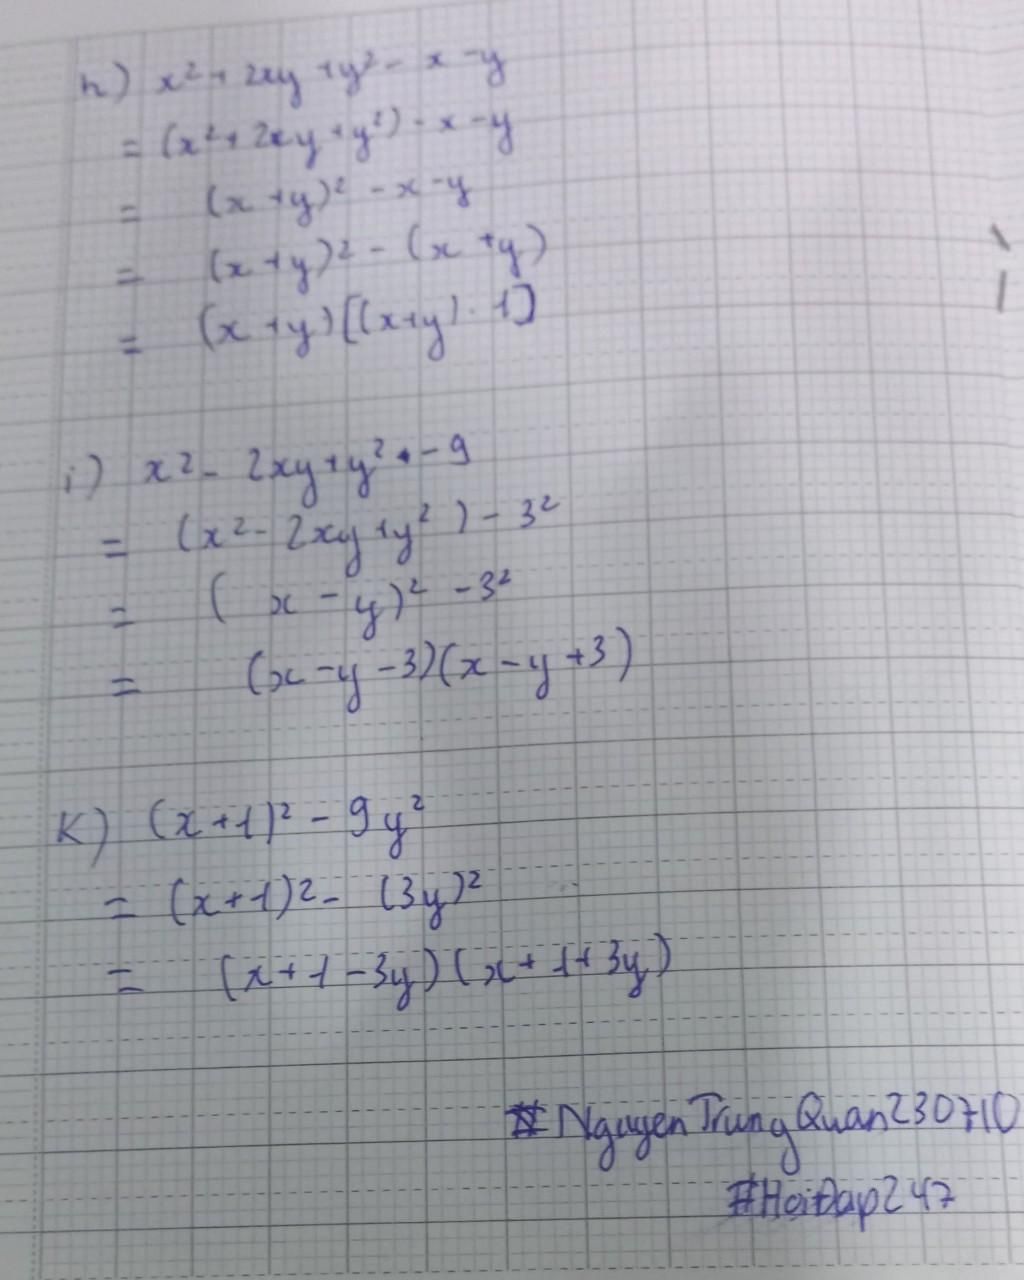 h) x² + 2xy + y² - x - y
= (x² + 2xy + y²) - x - y
= (x + y)² - x - y
= (x + y)² - (x + y)
= (x + y)[(x+y) · 1]
i) x² - 2xy + y² - 9
= (x² - 2xy + y²) - 3²
= (x - y)² - 3²
= (x - y - 3)(x - y + 3)
K) (x+1)² - 9y²
= (x+1)² - (3y)²
= (x + 1 - 3y)(x + 1 + 3y)
#NguyenTrungQuan230710
#HoiĐap247